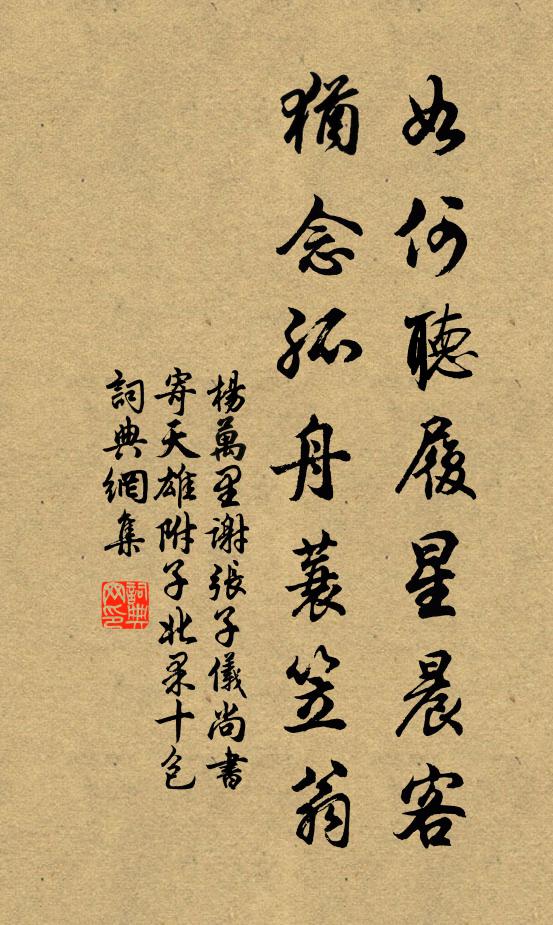 如何聽履星晨客
猶念孤舟蓑笠翁
楊萬里謝張子儀尚書
寄天雄附子北果十包
詞典網集
詞典網印